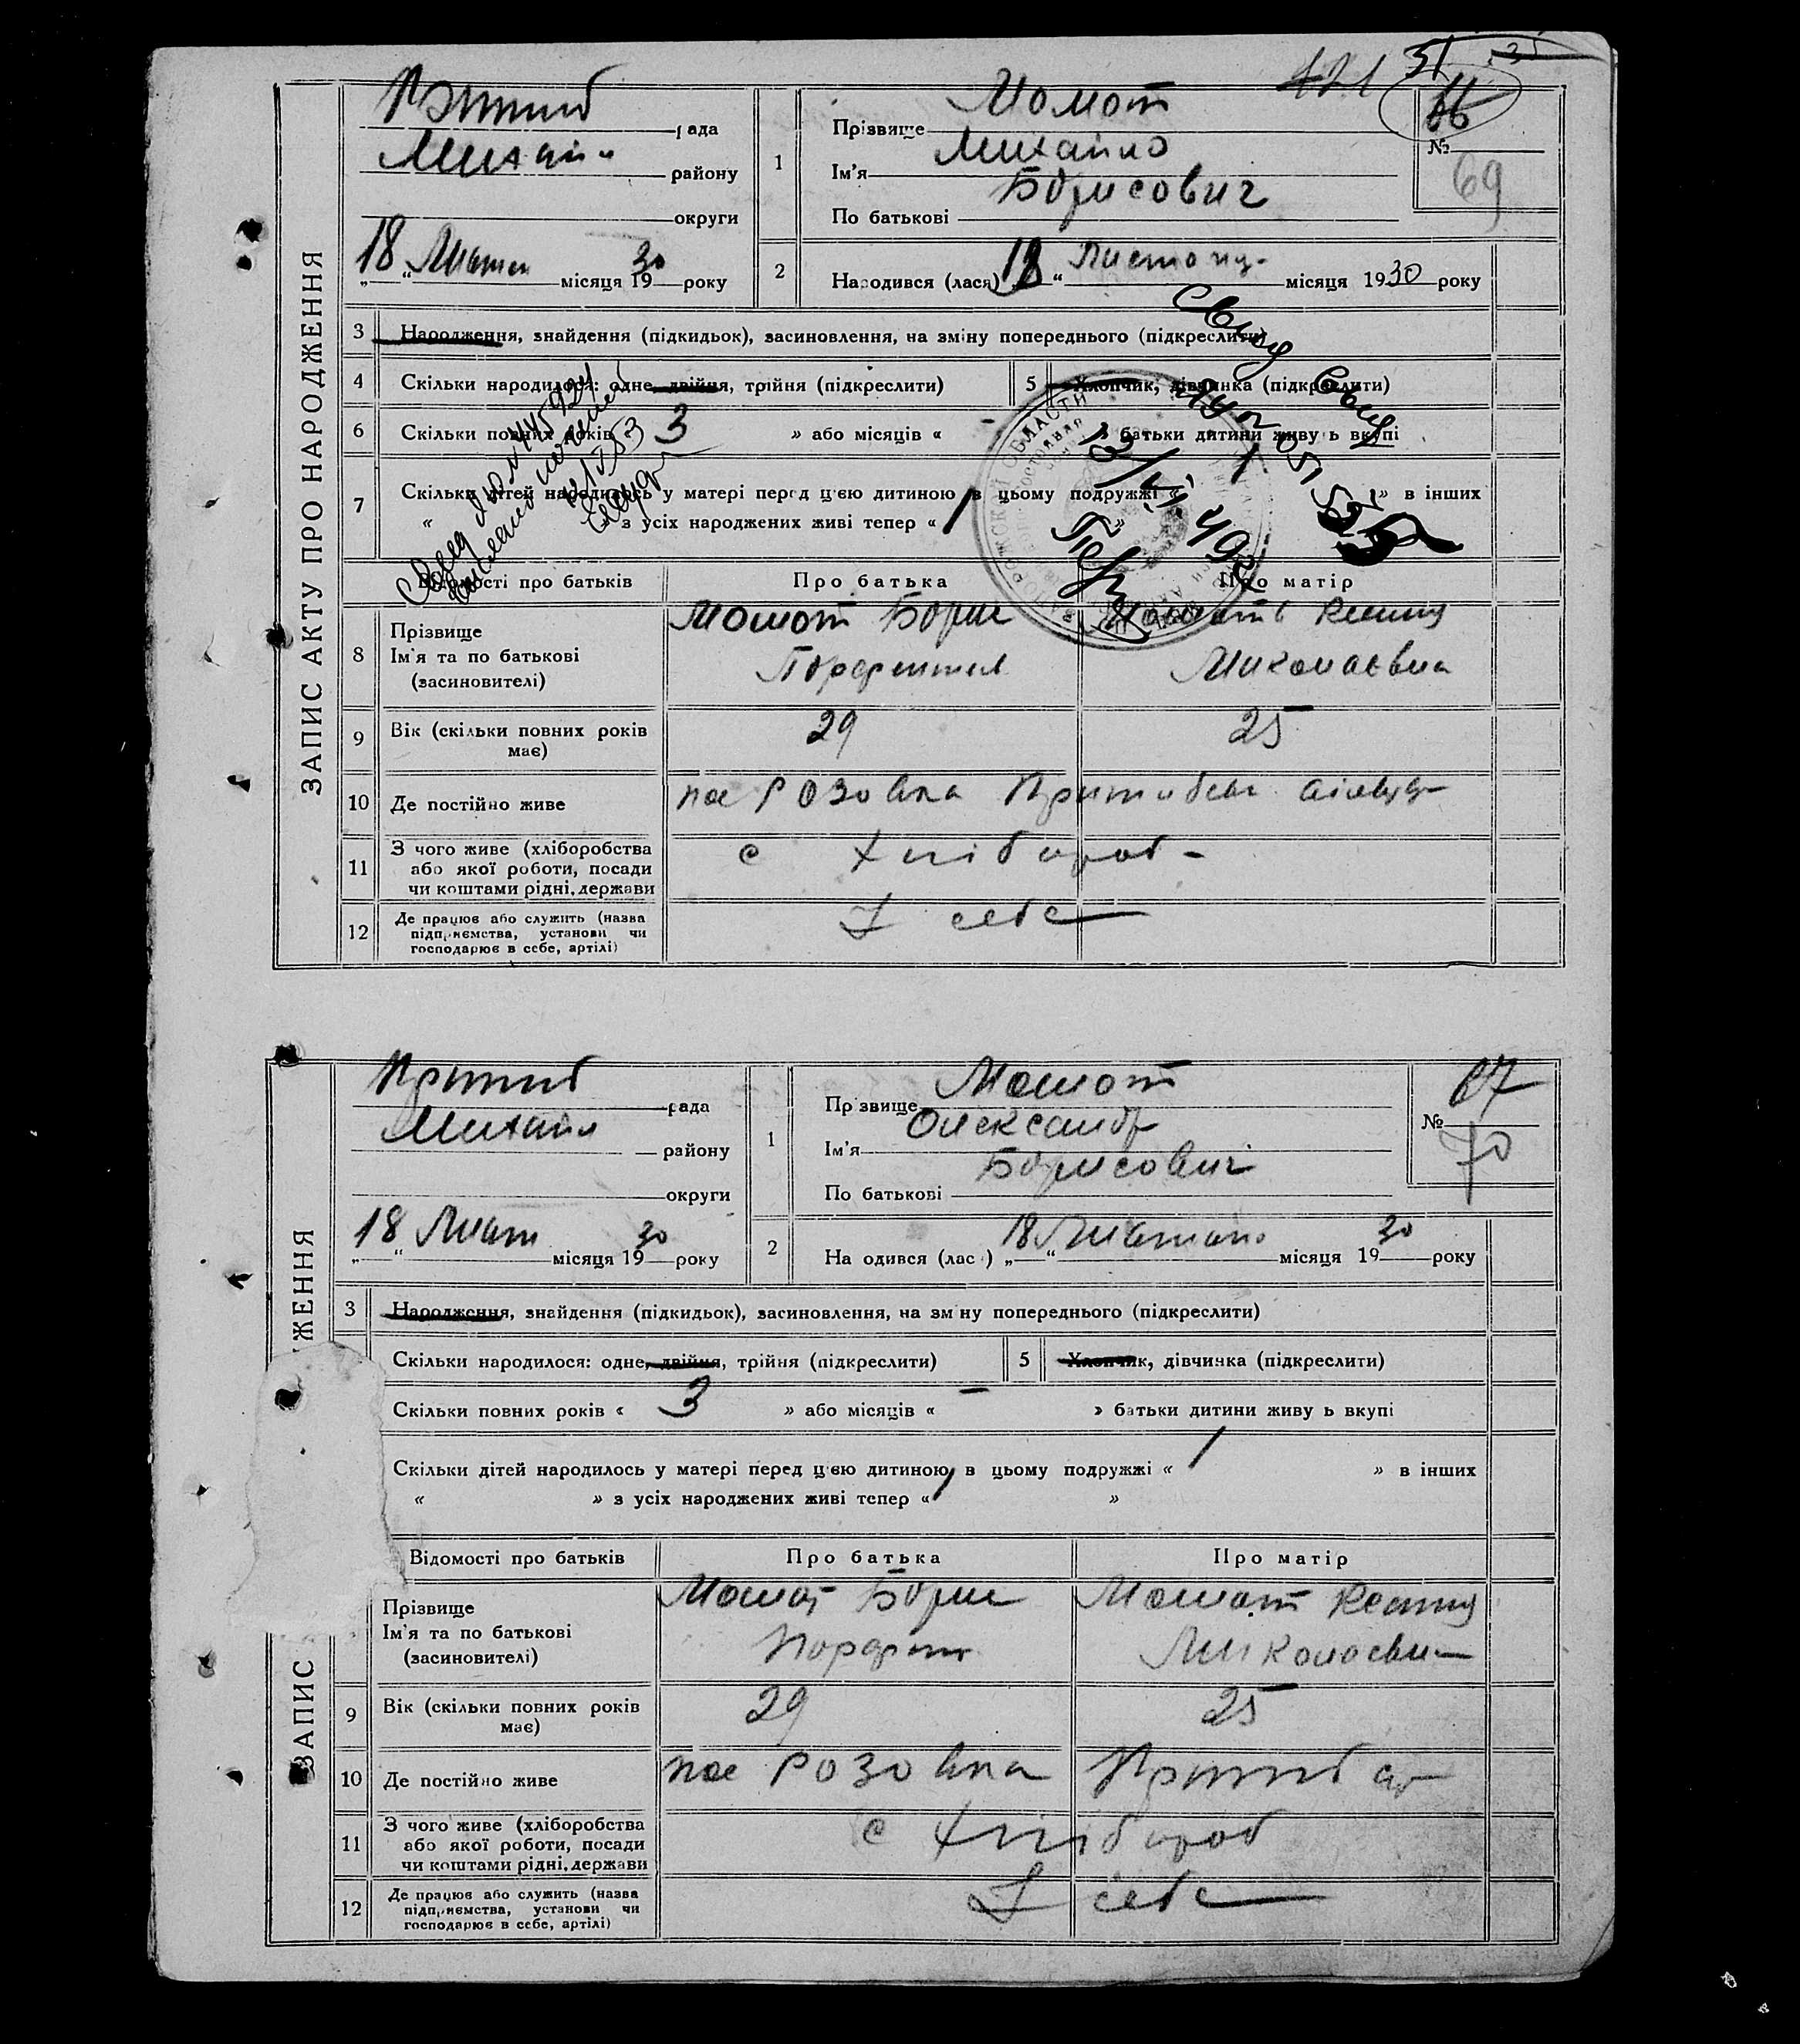 421 51
ЗАПИС АКТУ ПРО НАРОДЖЕННЯ
рада
Михайл
району
округи
„18“ Листоп місяця 1930 року
1
Прізвище Момот
Ім'я Михайло
По батькові Борисович
66
№
69
2
Народився (лася) 18 “ Листопад місяця 1930 року
3 Народження, знайдення (підкидьок), засиновлення, на зміну попереднього (підкреслити)
4 Скільки народилося: одне, двійня, трійня (підкреслити)
5 Хлопчик, дівчинка (підкреслити)
6 Скільки повних років 3 » або місяців « - » батьки дитини живу ь вкупі
7 Скільки дітей народилось у матері перед цією дитиною в цьому подружжі « 1 » в інших
« » з усіх народжених живі тепер « 1 »
Відомості про батьків
Про батька
Про матір
8
Прізвище
Ім'я та по батькові
(засиновителі)
Момот Борис
Момот
Миколаєвна
9
Вік (скільки повних років
має)
29
25
10 Де постійно живе
пос Розовка
11
З чого живе (хліборобства
або якої роботи, посади
чи коштами рідні, держави
с хлібороб
12
Де працює або служить (назва
підприємства, установи чи
господарює в себе, артілі)
У себе
ЗАПИС ЖЕННЯ
рада
Михайл
району
округи
„18“ Лист місяця 1930 року
1
Пр звище Момот
Ім'я Олександр
По батькові Борисович
67
№
70
2
На одився (лас ) „18“ Листопа місяця 1930 року
3 Народження, знайдення (підкидьок), засиновлення, на зм ну попереднього (підкреслити)
Скільки народилося: одне, двійня, трійня (підкреслити)
5 Хлопчик, дівчинка (підкреслити)
Скільки повних років « 3 » або місяців « - » батьки дитини живу ь вкупі
Скільки дітей народилось у матері перед цією дитиною в цьому подружжі « 1 » в інших
« » з усіх народжених живі тепер « 1 »
Відомості про батьків
Про батька
Про матір
Прізвище
Ім'я та по батькові
(засиновителі)
Момот Борис
Момот
9
Вік (скільки повних років
має)
29
25
10 Де постійно живе
пос Розовка
11
З чого живе (хліборобства
або якої роботи, посади
чи коштами рідні, держави
с хлібороб
12
Де працює або служить (назва
підприємства, установи чи
господарює в себе, артілі)
У себе